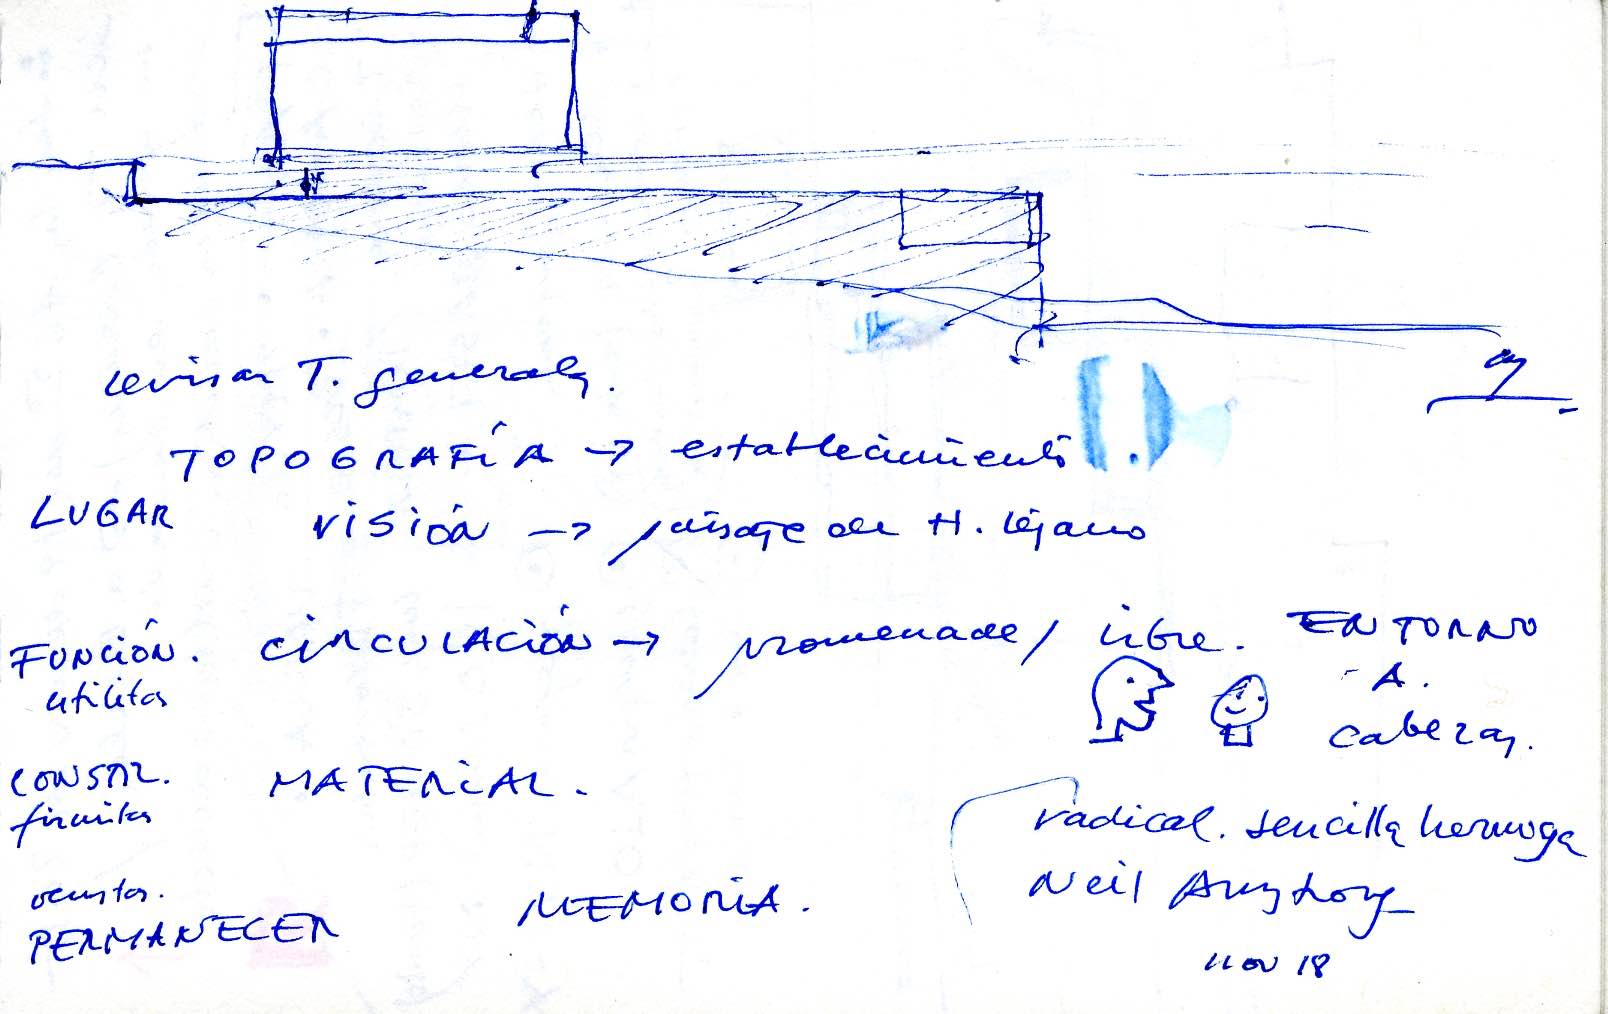 revisar T. generales.
TOPOGRAFÍA → establecimiento
LUGAR VISIÓN → paisaje de H. lejano
FUNCIÓN. CIRCULACIÓN → promenade / libre. EN TORNO
utilitas A.
cabezas.
CONSTR. MATERIAL.
firmitas radical. sencilla hermosa
venustas. Neil
PERMANECER MEMORIA.
nov 18